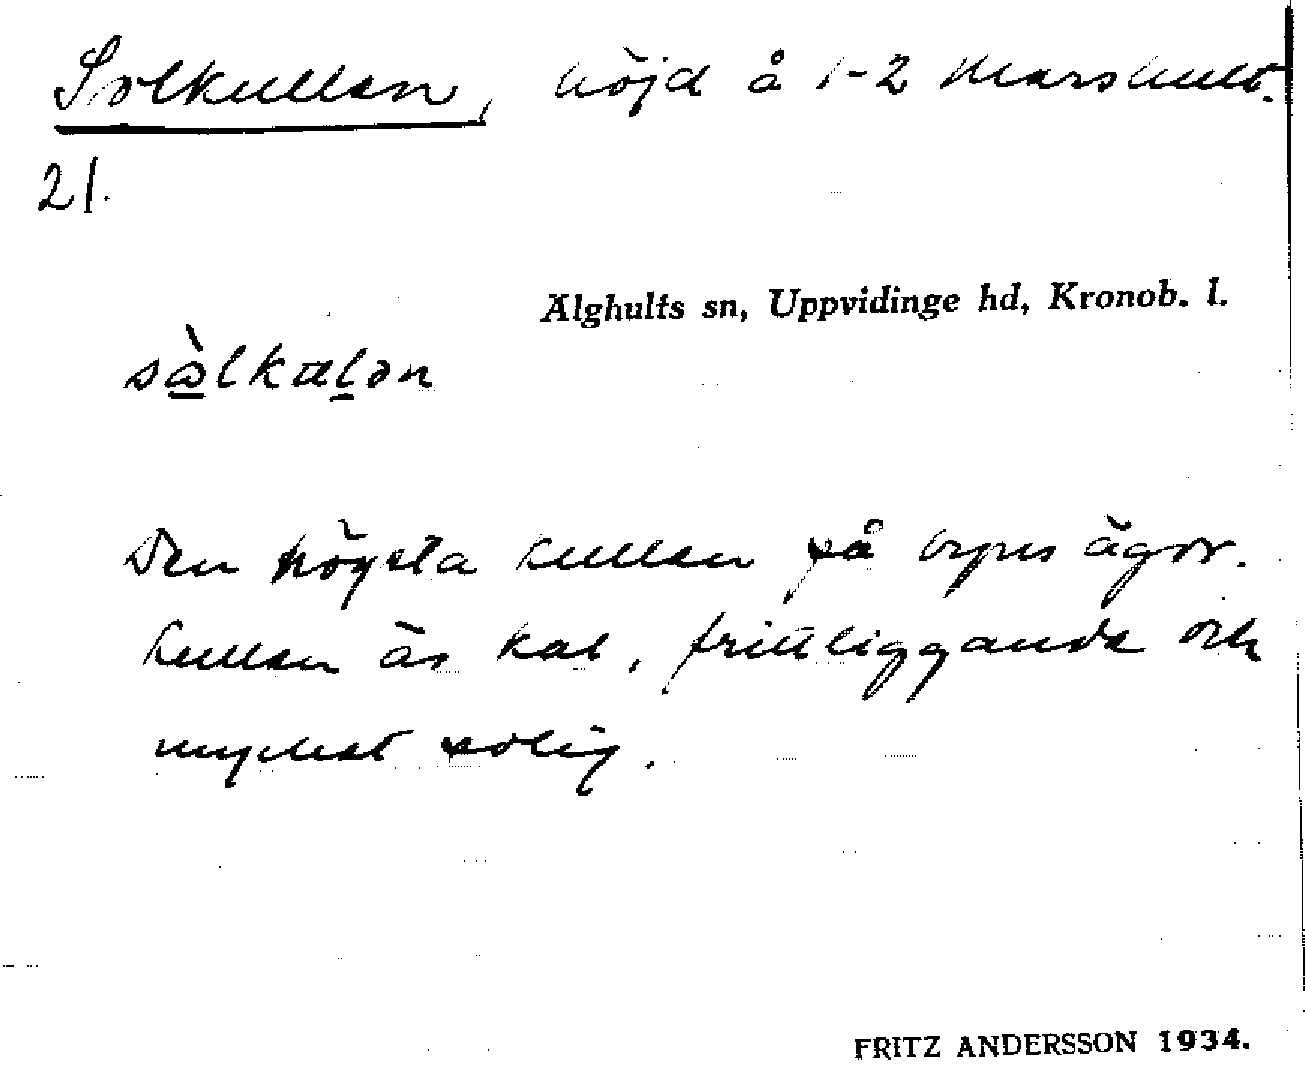 Solkullen, höjd å 1-2 Marshult.
21.
Älghults sn, Uppvidinge hd, Kronob. l.
Den högsta kullen på byns ägor.
Kullen är kal, frittliggande och
mycket solig.
FRITZ ANDERSSON 1934.